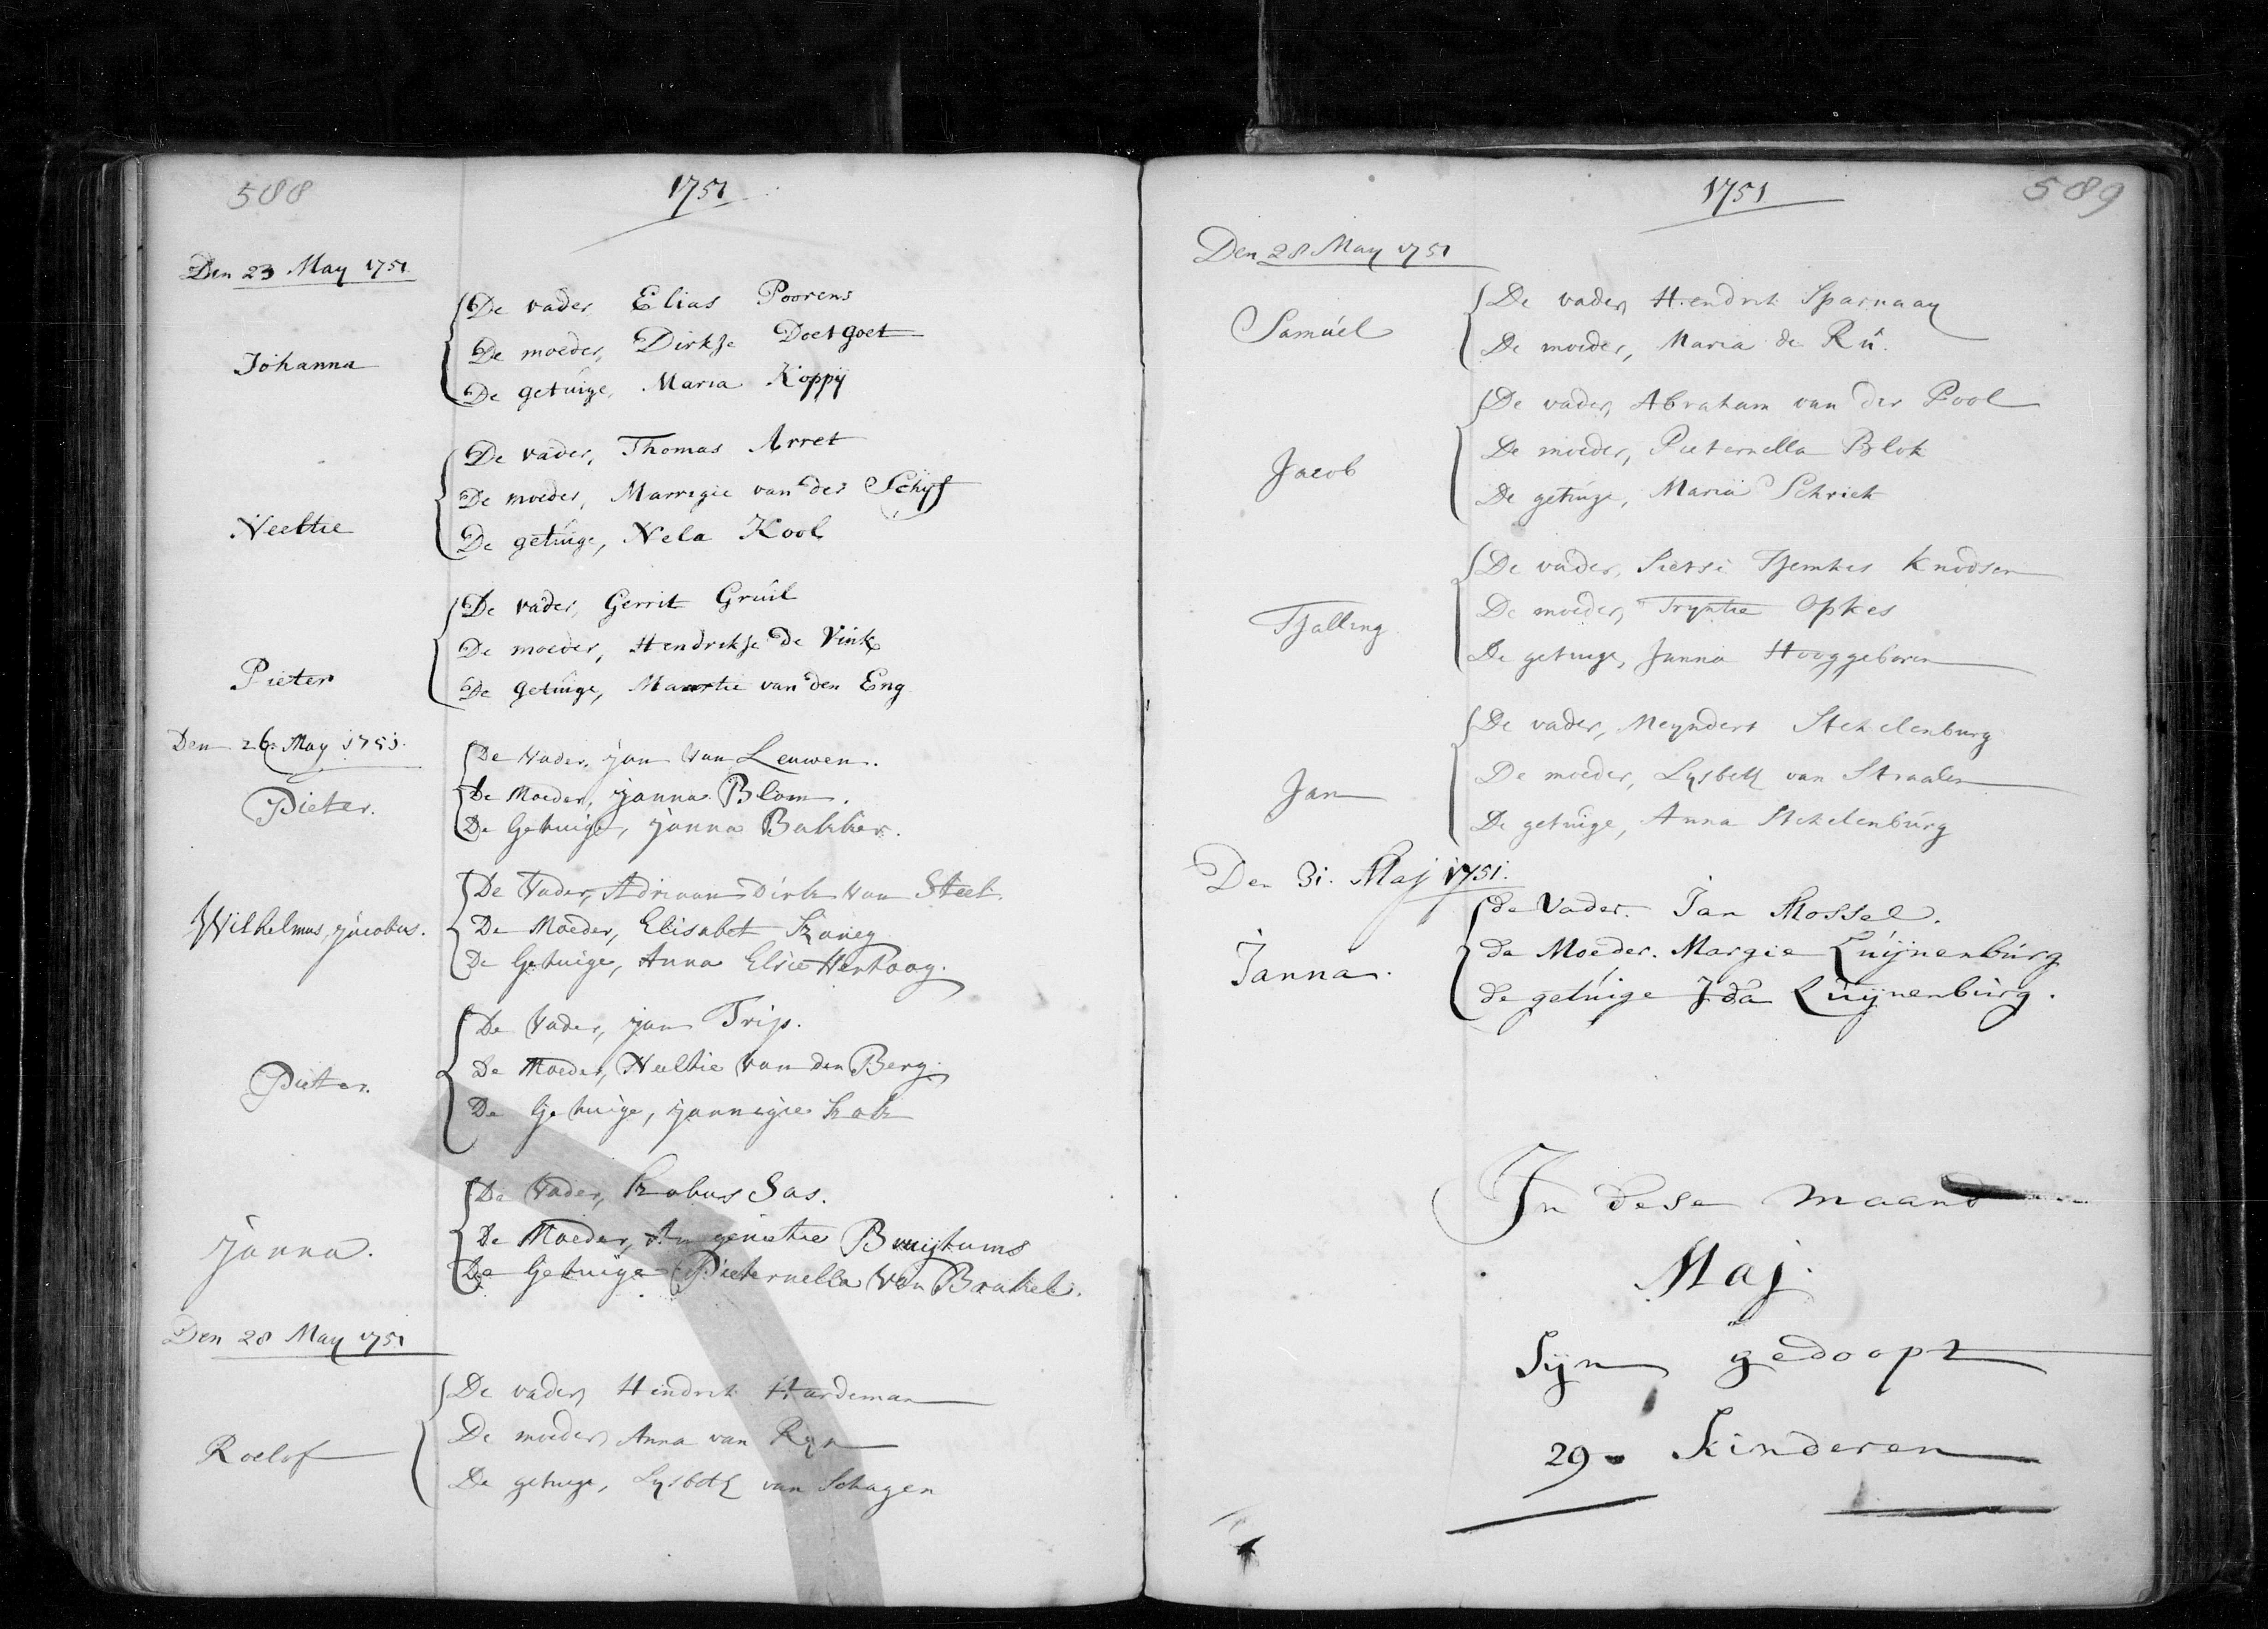 588
1751
Den 23 May 1751
Johanna
De vader Elias Poorens
De moeder, Dirkje Doetgoet
De getuige, Maria Koppij
Neeltie
De vader, Thomas Arret
De moeder, Marregie van der Schijf
De getuige, Nela Kool
Pieter
De vader, Gerrit Gruil
De moeder, Hendrikje de Vink
De Getuige, Maartie van den Eng
Den 26 May 1751.
Pieter.
De Vader, Jan Van Leuwen.
De Moeder, Janna Blom.
De Getuige, Janna Bakker.
Wilhelmus, Jacobus.
De Vader, Adriaan Dirk Van Steel.
De Moeder, Elisabet
De Getuige, Anna Elsie Hertoog.
Pieter.
De Vader, Jan Trip.
De Moeder, Neeltie Van den Berg.
De Getuige, Jannigie Kok
Janna.
De Vader, Kobus Sas.
De Moeder, Angenietie
De Getuige Pieternella Van Brakel.
Den 28 May 1751
Roelof
De vader, Hendrik Hardeman
De moeder, Anna van Ryn
De getuige, Lysbeth van Schagen
1751
589
Den 28 May 1751
Samuel
De vader, Hendrik Sparnaay
De moeder, Maria de Rú.
Jacob
De vader, Abraham van der Pool
De moeder, Pieternella Blok
De getuige, Maria Schriek
Tjalling
De vader, Sietse Tjemkes Knodsen
De moeder, Tryntie Opkes
De getuige, Janna Hooggeboren
Jan
De vader, Meyndert Stekelenburg
De moeder, Lysbeth van Straalen
De getuige, Anna Stekelenburg
Den 31. Maj 1751.
Janna.
de Vader. Jan Mossel.
de Moeder. Margie Luijnenburg
de getuige Ida Luijnenburg.
In dese maand
Maj.
Sijn gedoopt
29 - Kinderen